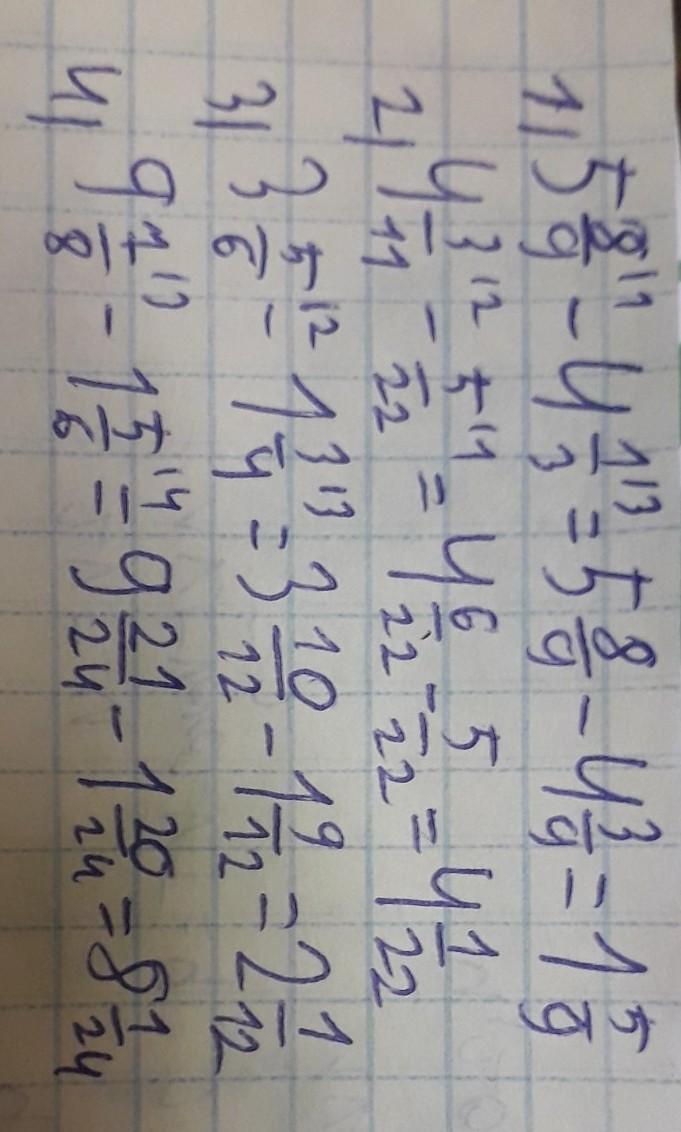 1) 5 8/9 ⁽¹ − 4 1/3 ⁽³ = 5 8/9 − 4 3/9 = 1 5/9
2) 4 3/11 ⁽² − 5/22 ⁽¹ = 4 6/22 − 5/22 = 4 1/22
3) 3 5/6 ⁽² − 1 3/4 ⁽³ = 3 10/12 − 1 9/12 = 2 1/12
4) 9 7/8 ⁽³ − 1 5/6 ⁽⁴ = 9 21/24 − 1 20/24 = 8 1/24